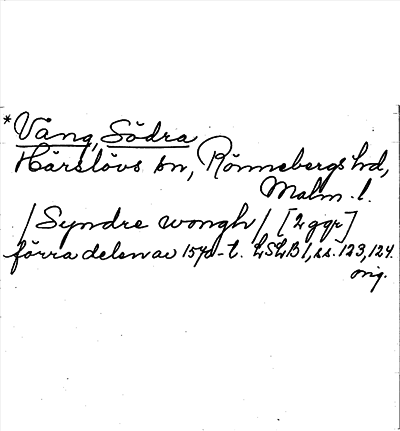 *Vång, Södra
Härslövs sn, Rönnebergs hd,
Malm. l.
/Syndre wongh/ [2 ggr]
förra delen av 1570-t. LSLB 1, ss. 123, 124.
orig.